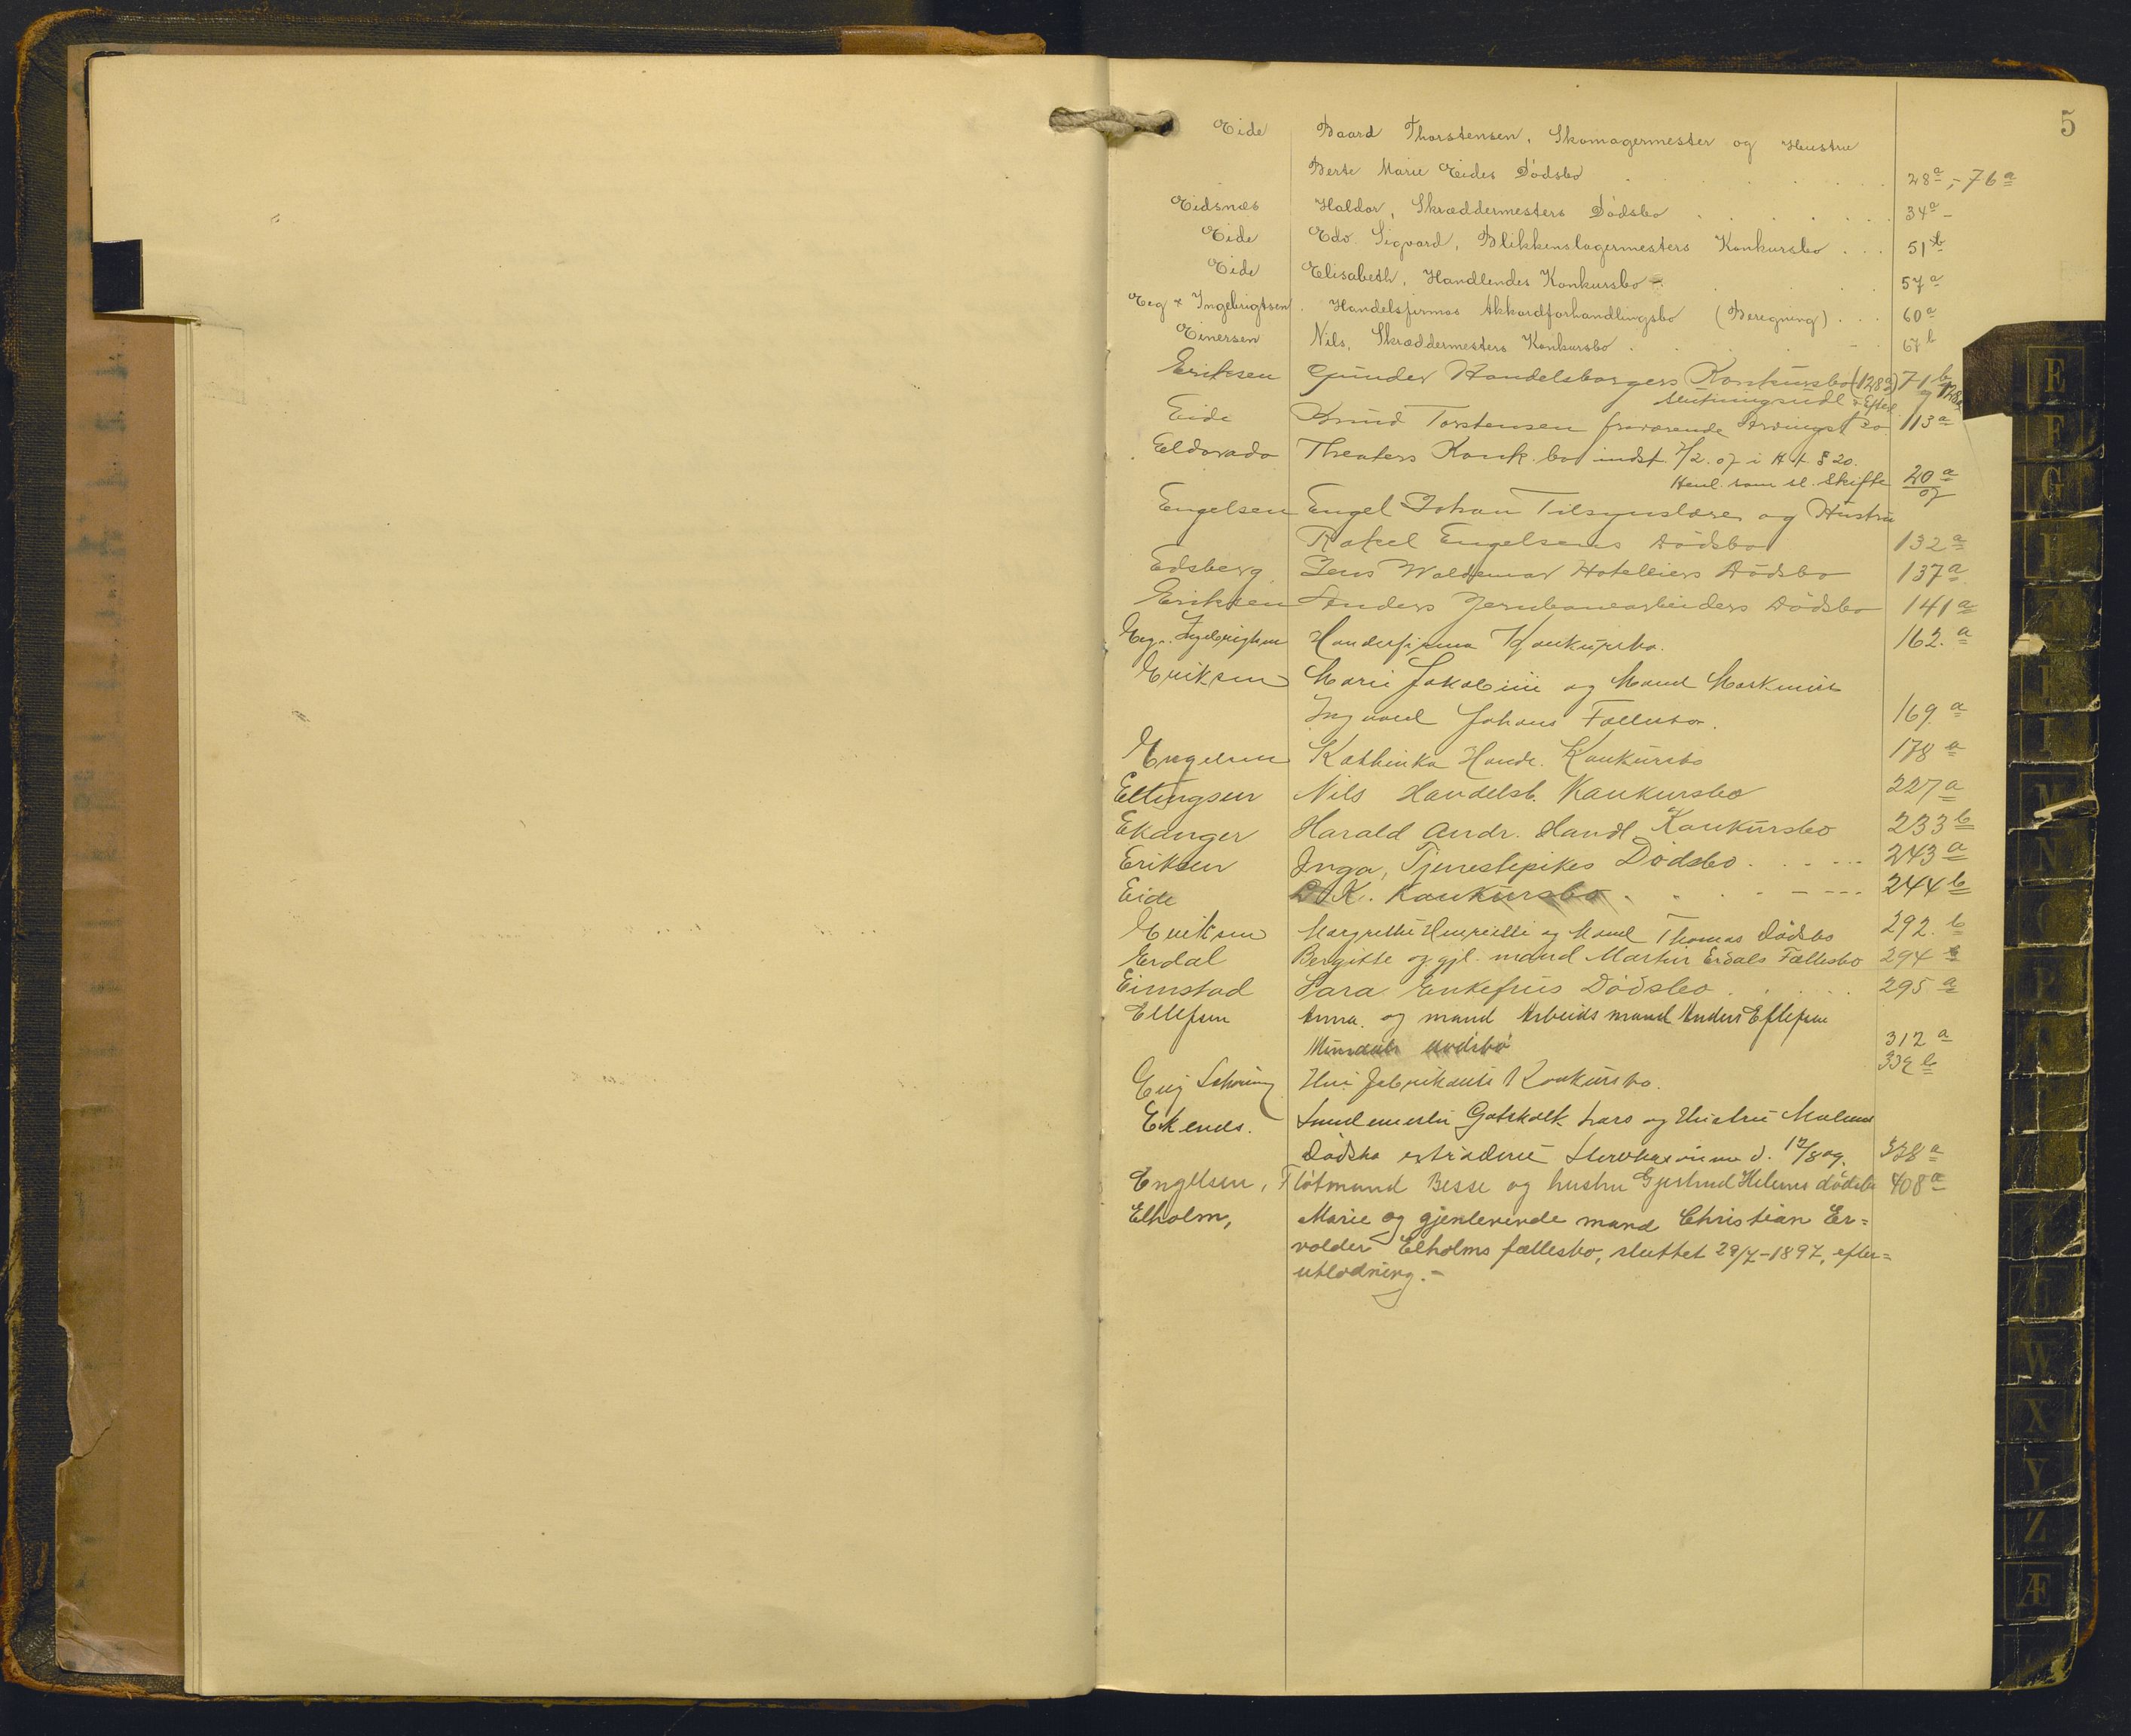 5
Eide Baard Thorstensen, Skomagermester og Hustru
Berte Marie Eides Dødsbo 28a, - 76a
Eidsnæs Haldor, Skræddermesters Dødsbo 34a -
Eide Edv. Sigvard, Blikkenslagermesters Konkursbo 51b
Eide Elisabeth, Handlendes Konkursbo 57a
Eeg & Ingebrigtsen Handelsfirmas Akkordforhandlingsbo (Beregning) 60a
Einersen Nils, Skræddermesters Konkursbo 67b
Eriksen Gunder Handelsborgers Konkursbo (128a) 71b
Slutningsudl. og 128a
Eide Knud Torstensen fraværende Arvings bo 113a
Eldorado Theaters Konk. bo indst. 7/2. 07 i H. t. § 20.
Henl. som sl. Skifte 20a/07
Engelsen Engel Johan Tilsynslærer og Hustru
Rakel Engelsens Dødsbo 132a
Edsberg Jens Waldemar Hotelliers Dødsbo 137a
Eriksen Anders Jernbanearbeiders Dødsbo 141a
Eeg & Ingebrigtsen Handelsfirma Konkursbo. 162.a
Eriksen Marie Jakobine og Mand
Ingvard Johans Fællesbo. 169.a
Engelsen Kathinka Handl. Konkursbo 178a
Ellingsen Nils Handelsb. Konkursbo 227a
Ekanger Harald Andr. Handl. Konkursbo 233b
Eriksen Inga, Tjenestepikes Dødsbo 243a
Eide D. K. Konkursbo 244b
Eriksen Margrethe Henriette og Mand Thomas Dødsbo 292.b
Erdal Bergitte og gjl. mand Martin Erdals Fællesbo 294
Eimstad Sara Enkefrus Dødsbo 295.a
Ellefsen Anna og mand Arbeidsmand Anders Ellefsen
dødsbo 312a
Konkursbo. 339b
Ekends. Gotskalk Lars og Hustru
Dødsbo d. 17/8 09. 378a
Engelsen, Fløtmand Besse og hustru Gjertrud Helenes dødsbo 408a
Elholm, Marie og gjenlevende mand Christian Er=
volder Elholms fællesbo, sluttet 29/7-1897, efter=
utlodning. -
E
F
G
H
I
M
N
O
P
U
W
X
Y
Z
Æ